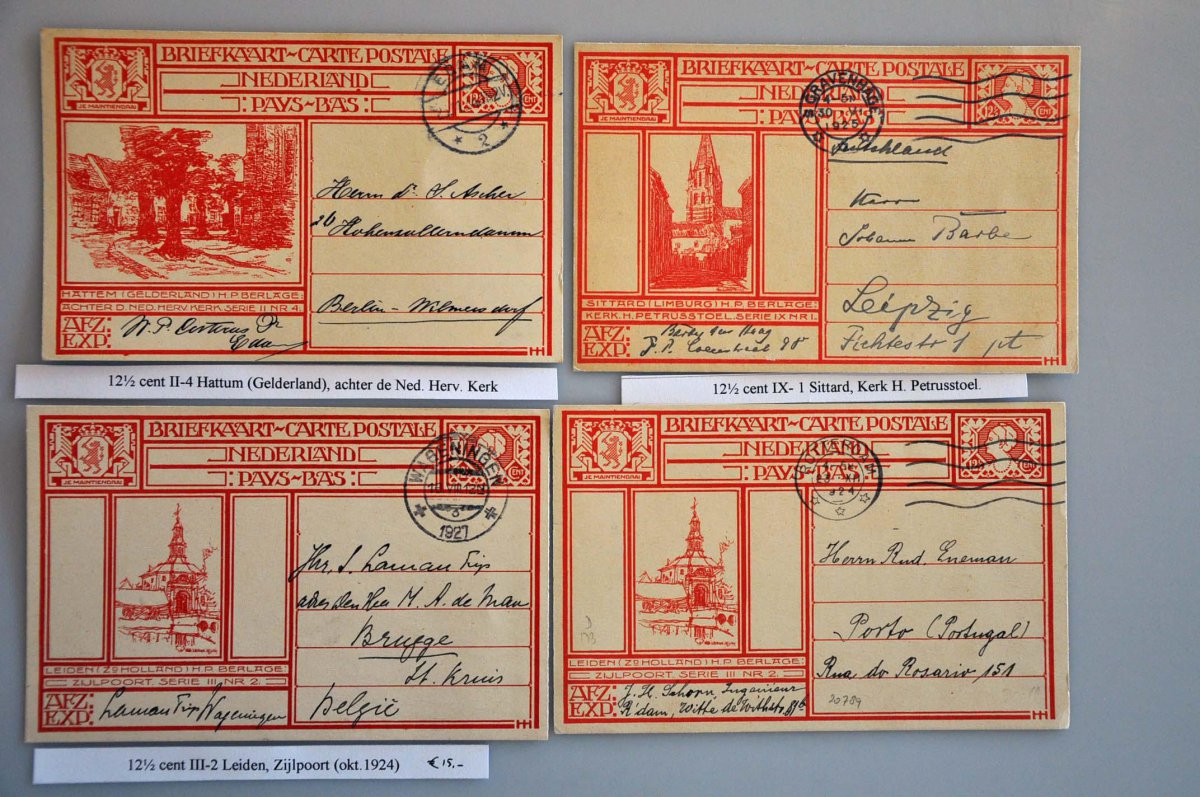 BRIEFKAART~CARTE POSTALE
NEDERLAND
PAYS-BAS
JE MAINTIENDRAI
CENT
2
Herrn dr. S. Ascher
26 Hohenzollerndamm
Berlin - Wilmersdorf
HATTEM (GELDERLAND) H.P. BERLAGE:
ACHTER D. NED. HERV. KERK. SERIE II NR 4:
AFZ:
EXP:
Edam
12½ cent II-4 Hattum (Gelderland), achter de Ned. Herv. Kerk
BRIEFKAART~CARTE POSTALE
NEDERLAND
PAYS-BAS
JE MAINTIENDRAI
12½ CENT
'S GRAVENHAGE
1925
Herrn
Johann Barbe
Leipzig
Fichtestr 1 pt
SITTARD (LIMBURG) H.P. BERLAGE:
KERK. H. PETRUSSTOEL. SERIE IX NR 1.
AFZ:
EXP:
12½ cent IX- 1 Sittard, Kerk H. Petrusstoel.
BRIEFKAART~CARTE POSTALE
NEDERLAND
PAYS-BAS
JE MAINTIENDRAI
CENT
WAGENINGEN
1927
Jhr. S. Laman Trip
M. A. de Man
Brugge
St. Kruis
België
LEIDEN (ZD HOLLAND) H.P. BERLAGE:
ZIJLPOORT. SERIE III NR 2.
AFZ:
EXP:
Laman Trip Wageningen
12½ cent III-2 Leiden, Zijlpoort (okt.1924) € 15,-
BRIEFKAART~CARTE POSTALE
NEDERLAND
PAYS-BAS
JE MAINTIENDRAI
12½ CENT
ROTTERDAM
1924
Herrn Rud. Eneman
Porto (Portugal)
Rua do Rosario 151
LEIDEN (ZD HOLLAND) H.P. BERLAGE:
ZIJLPOORT. SERIE III NR 2.
AFZ:
EXP:
J. H. Schorn, Ingenieur
R'dam, Witte de Withstr.
20789